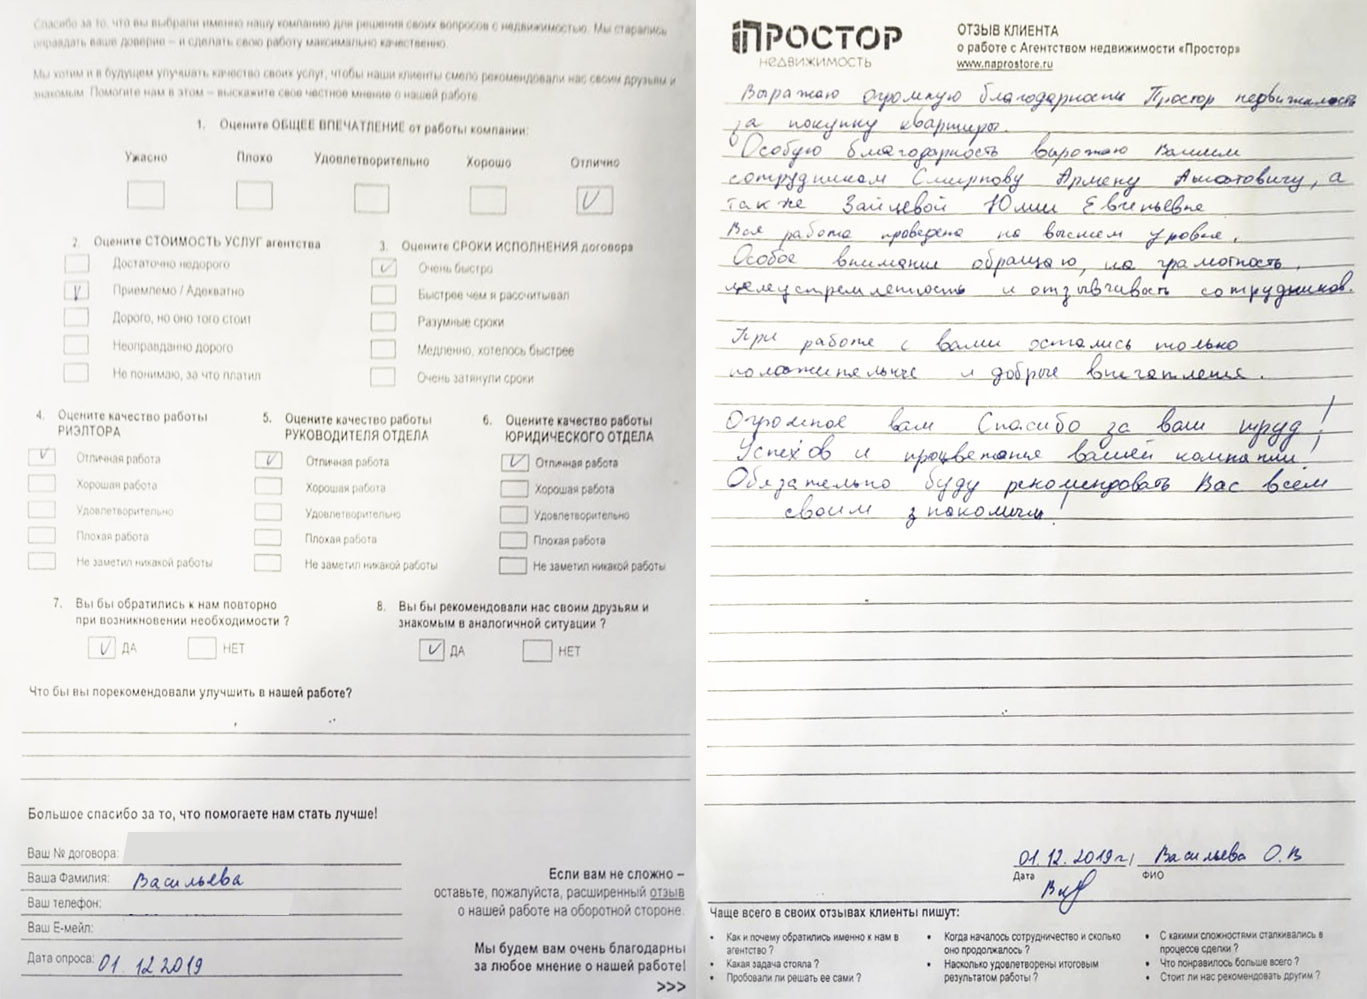 Спасибо за то, что вы выбрали именно нашу компанию для решения своих вопросов с недвижимостью. Мы старались
оправдать ваше доверие – и сделать свою работу максимально качественно.
Мы хотим и в будущем улучшать качество своих услуг, чтобы наши клиенты смело рекомендовали нас своим друзьям и
знакомым. Помогите нам в этом – выскажите свое честное мнение о нашей работе.
1. Оцените ОБЩЕЕ ВПЕЧАТЛЕНИЕ от работы компании:
Ужасно Плохо Удовлетворительно Хорошо Отлично
2. Оцените СТОИМОСТЬ УСЛУГ агентства
Достаточно недорого
Приемлемо / Адекватно
Дорого, но оно того стоит
Неоправданно дорого
Не понимаю, за что платил
3. Оцените СРОКИ ИСПОЛНЕНИЯ договора
Очень быстро
Быстрее чем я рассчитывал
Разумные сроки
Медленно, хотелось быстрее
Очень затянули сроки
4. Оцените качество работы
РИЭЛТОРА
Отличная работа
Хорошая работа
Удовлетворительно
Плохая работа
Не заметил никакой работы
5. Оцените качество работы
РУКОВОДИТЕЛЯ ОТДЕЛА
Отличная работа
Хорошая работа
Удовлетворительно
Плохая работа
Не заметил никакой работы
6. Оцените качество работы
ЮРИДИЧЕСКОГО ОТДЕЛА
Отличная работа
Хорошая работа
Удовлетворительно
Плохая работа
Не заметил никакой работы
7. Вы бы обратились к нам повторно
при возникновении необходимости ?
ДА НЕТ
8. Вы бы рекомендовали нас своим друзьям и
знакомым в аналогичной ситуации ?
ДА НЕТ
Что бы вы порекомендовали улучшить в нашей работе?
Большое спасибо за то, что помогаете нам стать лучше!
Ваш № договора:
Ваша Фамилия: Васильева
Ваш телефон:
Ваш Е-мейл:
Дата опроса: 01. 12 2019
Если вам не сложно –
оставьте, пожалуйста, расширенный отзыв
о нашей работе на оборотной стороне.
Мы будем вам очень благодарны
за любое мнение о нашей работе!
>>>
ПРОСТОР
НЕДВИЖИМОСТЬ
ОТЗЫВ КЛИЕНТА
о работе с Агентством недвижимости «Простор»
www.naprostore.ru
Выражаю огромную благодарность Простор недвижимость
за покупку квартиры.
Особую благодарность выражаю Вашим
сотрудникам Смирнову Армену Ашотовичу, а
также Зайцевой Юлии Евгеньевне
Вся работа проведена на высшем уровне.
Особое внимание обращаю, на грамотность,
целеустремленность и отзывчивость сотрудников.
При работе с вами остались только
положительные и добрые впечатления.
Огромное вам Спасибо за ваш труд!
Успехов и процветания вашей компании!
Обязательно буду рекомендовать Вас всем
своим знакомым!
01.12.2019г. Васильева О.В
Дата ФИО
Чаще всего в своих отзывах клиенты пишут:
• Как и почему обратились именно к нам в
агентство ?
• Какая задача стояла ?
• Пробовали ли решать ее сами ?
• Когда началось сотрудничество и сколько
оно продолжалось ?
• Насколько удовлетворены итоговым
результатом работы ?
• С какими сложностями сталкивались в
процессе сделки ?
• Что понравилось больше всего ?
• Стоит ли нас рекомендовать другим ?